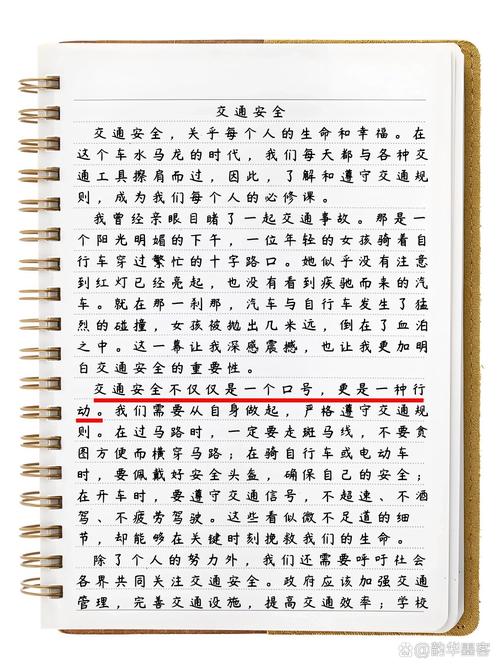 交通安全
交通安全，关乎每个人的生命和幸福。在
这个车水马龙的时代，我们每天都与各种交
通工具擦肩而过，因此，了解和遵守交通规
则，成为我们每个人的必修课。
我曾经亲眼目睹了一起交通事故。那是一
个阳光明媚的下午，一位年轻的女孩骑着自
行车穿过繁忙的十字路口。她似乎没有注意
到红灯已经亮起，也没有看到疾驰而来的汽
车。就在那一刹那，汽车与自行车发生了猛
烈的碰撞，女孩被抛出几米远，倒在了血泊
之中。这一幕让我深感震撼，也让我更加明
白交通安全的重要性。
交通安全不仅仅是一个口号，更是一种行
动。我们需要从自身做起，严格遵守交通规
则。在过马路时，一定要走斑马线，不要贪
图方便而横穿马路；在骑自行车或电动车
时，要佩戴好安全头盔，确保自己的安全；
在开车时，要遵守交通信号，不超速、不酒
驾、不疲劳驾驶。这些看似微不足道的细
节，却能够在关键时刻挽救我们的生命。
除了个人的努力外，我们还需要呼吁社会
各界共同关注交通安全。政府应该加强交通
管理，完善交通设施，提高交通效率；学校
韵华墨客